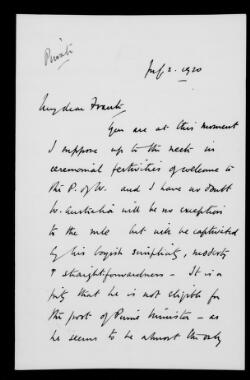 Private
July 2. 1920
My dear Frank,
You are at this moment
I suppose up to the neck in
ceremonial festivities of welcome to
the P. of W. and I have no doubt
W. Australia will be no exception
to the rule but will be captivated
by his boyish simplicity, modesty
& straightforwardness - It is a
pity that he is not eligible for
the post of Prime Minister - as
he seems to be almost the only